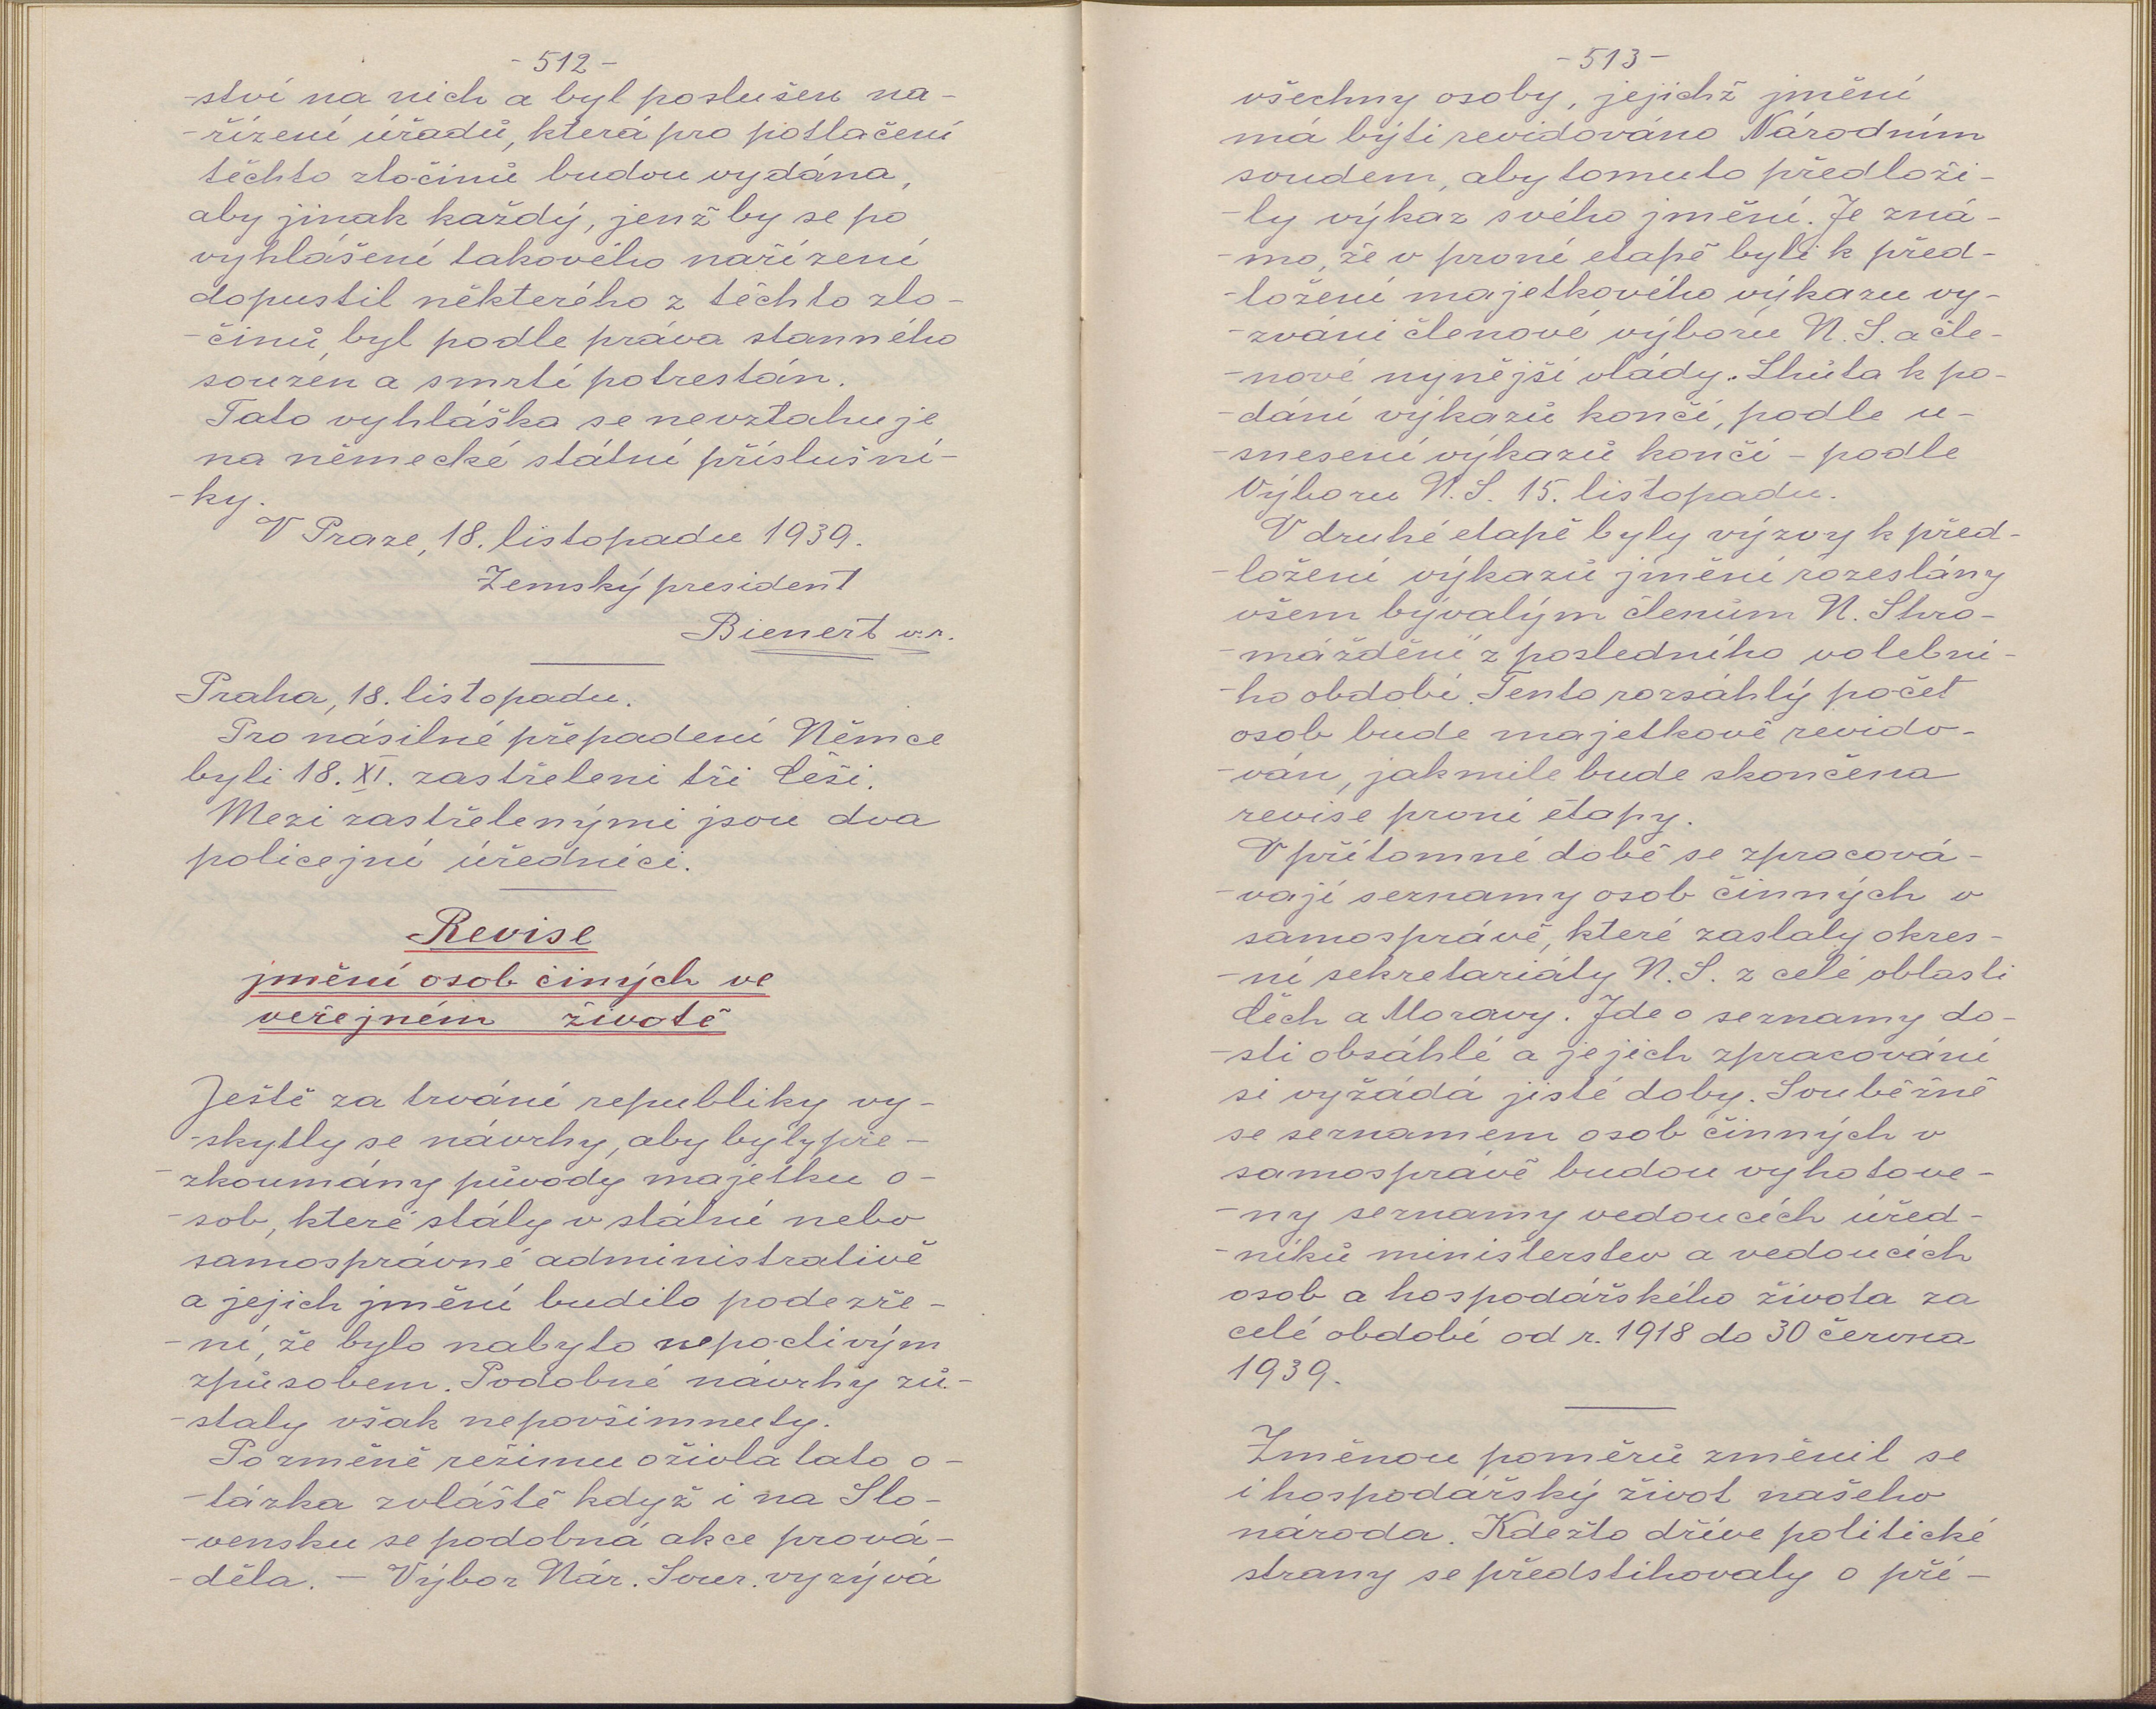 - 512 -
-ství na nich a byl poslušen na-
-řízení úřadů, která pro potlačení
těchto zločinů budou vydána,
aby jinak každý, jenž by se po
vyhlášení takového nařízení
dopustil některého z těchto zlo-
-činů, byl podle práva stanného
souzen a smrtí potrestán.
Tato vyhláška se nevztahuje
na německé státní příslušní-
-ky.
V Praze, 18. listopadu 1939.
Zemský president
Bienert v.r.
Praha, 18. listopadu.
Pro násilné přepadení Němce
byli 18. XI. zastřeleni tři Češi.
Mezi zastřelenými jsou dva
policejní úředníci.
Revise
jmění osob činých ve
veřejném životě
Ještě za trvání republiky vy-
-skytly se návrhy, aby byly pře-
-zkoumány původy majetku o-
-sob, které stály v státní nebo
samosprávné administrativě
a jejich jmění budilo podezře-
-ní, že bylo nabyto nepoctivým
způsobem. Podobné návrhy zů-
-staly však nepovšimnuty.
Po změně režimu oživla tato o-
-tázka zvláště když i na Slo-
-vensku se podobná akce prová-
-děla. - Výbor Nár. Sour. vyzývá
- 513 -
všechny osoby, jejichž jmění
má býti revidováno Národním
soudem, aby tomuto předloži-
-ly výkaz svého jmění. Je zná-
-mo, že v první etapě byli k před-
-ložení majetkového výkazu vy-
-zváni členové výboru N. S. a čle-
-nové nynější vlády. Lhůta k po-
-dání výkazů končí, podle u-
-snesení výkazů končí - podle
Výboru N. S. 15. listopadu.
V druhé etapě byly výzvy k před-
-ložení výkazů jmění rozeslány
všem bývalým členům N. Shro-
-máždění z posledního volební-
-ho období. Tento rozsáhlý počet
osob bude majetkově revido-
-ván, jakmile bude skončena
revise první etapy.
V přítomné době se zpracová-
-vají seznamy osob činných v
samosprávě, které zaslaly okres-
-ní sekretariáty N. S. z celé oblasti
Čech a Moravy. Jde o seznamy do-
-sti obsáhlé a jejich zpracování
si vyžádá jisté doby. Souběžně
se seznamem osob činných v
samosprávě budou vyhotove-
-ny seznamy vedoucích úřed-
-níků ministerstev a vedoucích
osob a hospodářského života za
celé období od r. 1918 do 30 června
1939.
Změnou poměrů změnil se
i hospodářský život našeho
národa. Kdežto dříve politické
strany se předstihovaly o pří-